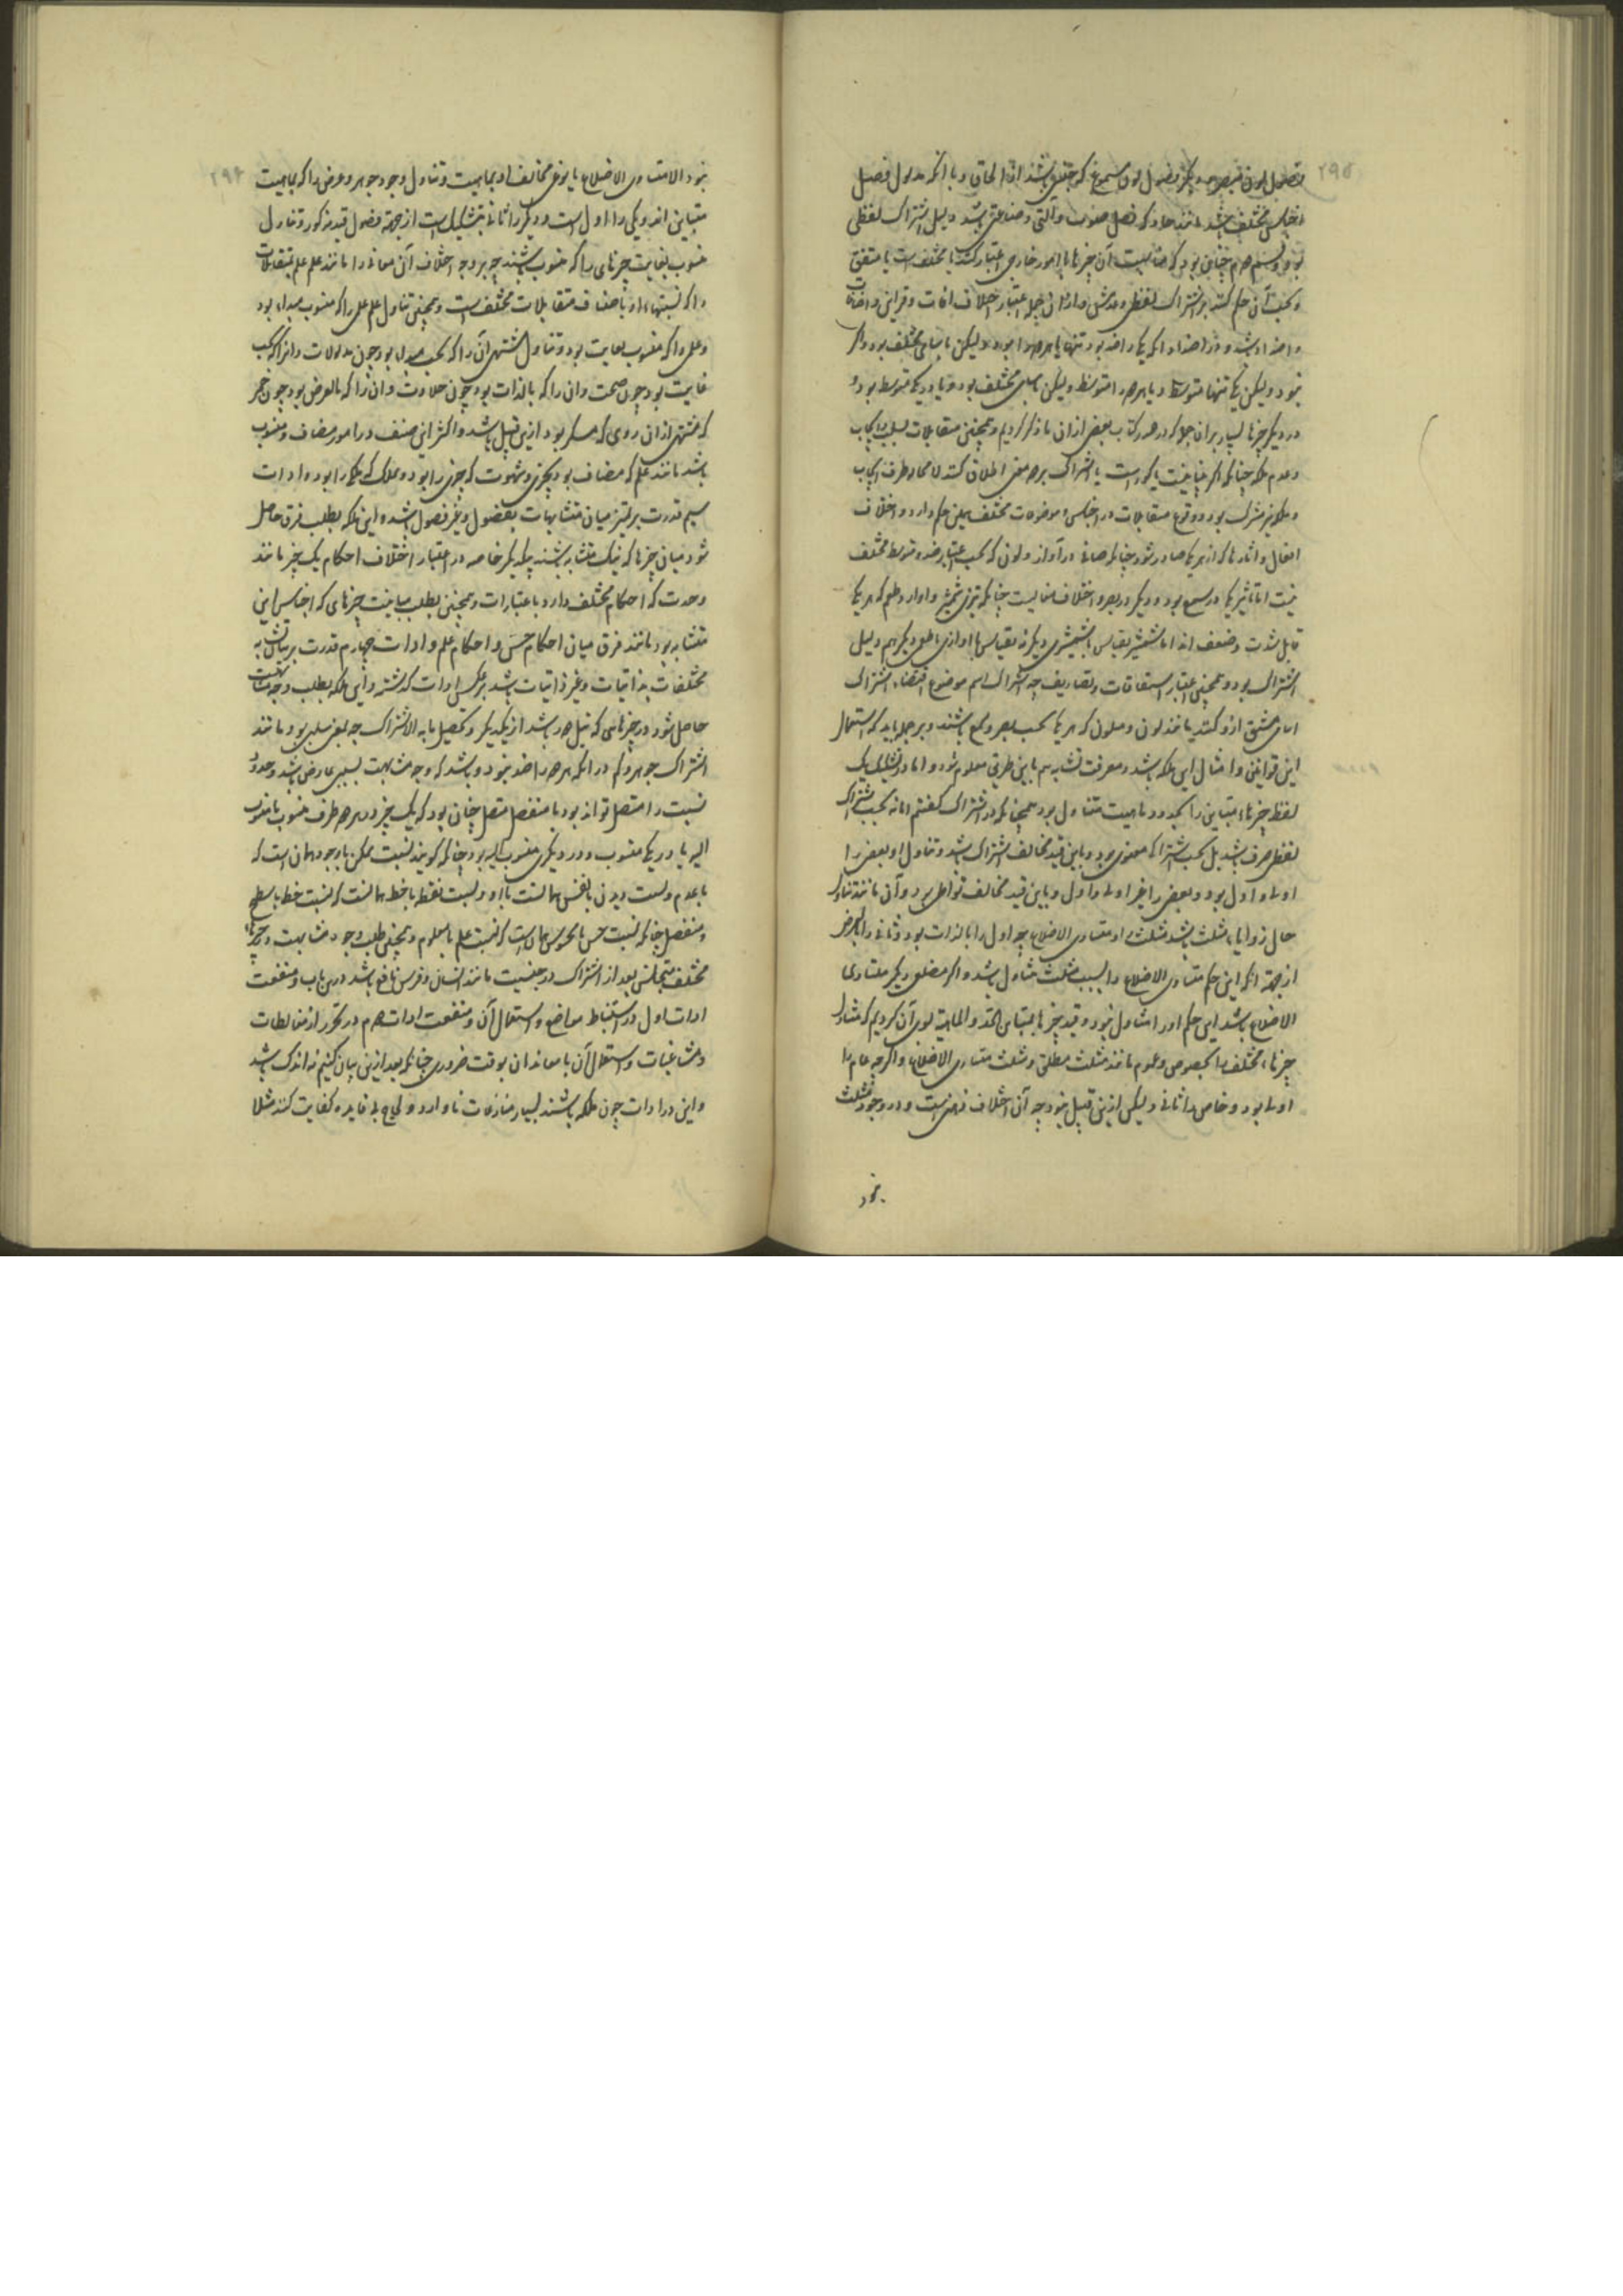 ۲۹۵
اجناس مختلف باشد مانند حاد که فصل صوت و آلتی و صناعتی باشد دلیل اشتراک لفظی
بود و قسم دوم چنان بود که مناسبت آن چیزها با امور خارجی اعتبار کنند تا مختلف است یا متفق
و بحسب آن حکم کنند بر اشتراک لفظی و عدمش و از آن جمله اعتبار اختلاف اضافات و قراین و
و اضداد باشد و در اضداد اگر یکی را ضد بود تنها یا هر دو را بود ولیکن باسامی مختلف بود و دیگر
نبود ولیکن یکی تنها متوسط و یا هر دو را متوسط ولیکن باسامی مختلف بود و یا در یکی متوسط بود و
در دیگر چیزها بسیار بر آن جمله که در صدر کتاب بعضی از آن یاد کردیم و همچنین متقابلات بسلب و ایجاب
و عدم و ملکه چنانکه اگر نابینایست یا کور است باشتراک بر دو معنی اطلاق کنند لا محاله طرف ایجاب
و ملکه نیز مشترک بود و وقوع متقابلات در اجناس و موضوعات مختلف همین حکم دارد و اختلاف
افعال و آثار ها که از هر یکی صادر شود چنانکه صافی در آواز و لون که بحسب اعتبار ضد و متوسط مختلف
نیست اما تاثیر یکی در سمع بود و دیگر در بصر و اختلاف مناسبت چنانکه تیزی شمشیر و آواز و طعم که هر یکی
قابل شدت و ضعف اند اما شمشیر بقیاس با شمشیری دیگر نه بقیاس با آوازی یا طعمی دیگر هم دلیل
اشتراک بود و همچنین اعتبار اشتقاقات و تصاریف چه اشتراک اسم موضوع اقتضاء اشتراک
اسامی مشتق ازو کند مانند لون و ملون که هر یکی بحسب بصر و سمع باشند و بر جمله باید که استعمال
این قوانین و امثال این ملکه باشد و معرفت تشابه هم باین طریق معلوم شود و اما در تشکیک یک
لفظ چیزهاء متباین را بحد و ماهیت متناول بود همچنانکه در اشتراک گفتیم اما نه بحسب اشتراک
لفظ صرف باشد بل بحسب اشتراک معنوی بود و باین قید مخالف اشتراک باشد و تناول او بعضی را
اولی و اول بود و بعضی را غیر اولی و اول و باین قید مخالف تواطی بود و آن مانند تناول
حال زوایاء مثلث باشد مثلث را و متساوی الاضلاع چه اول را بالذات بود و ثانی را بالعرض
از جهة آنکه این حکم متساوی الاضلاع را بسبب مثلث متناول باشد و اگر مضلعی دیگر متساوی
الاضلاع باشد این حکم او را متناول نبود و قید چیزها بمتباین الحد و الماهیة برای آن کردیم که متناول
چیزهاء مختلف را بخصوص و عموم مانند مثلث مطلق و مثلث متساوی الاضلاع و اگرچه عام را
اولی بود و خاص را ثانی ولیکن ازین قبیل نبود چه آن اختلاف ذهنی است و در وجود مثلث
نبود
۲۹۶
نبود الا متساوی الاضلاع یا نوعی مخالف او بماهیت و تناول وجود جوهر و عرض را که بماهیت
متباین اند و یکی را اول است و دیگر را ثانی بتشکیک است از جهة حصول قید مذکور و تناول
منسوب بغایت چیزهائی را که منسوب باشند چه بر وجه اختلاف آن معانی را مانند علم علم بمتقابلات
را که نسبتهاء او باصناف متقابلات مختلف است و همچنین تناول علم علمی را که منسوب بمبداء بود
و علمی را که منسوب بغایت بود و تناول مشتهی آن را که بحسب مبدا بود چون مدلولات و آنرا که بحسب
غایت بود چون صحت و آن را که بالذات بود چون حلاوت و آن را که بالعرض بود چون خمر
که مشتهی از آن روی که مسکر بود ازین قبیل باشد و اکثر این صنف در امور مضاف و منسوب
باشد مانند علم که مضاف بود بچیزی و شهوت که چیزی را بود و ملک که ملک را بود و ادات
سیم قدرت بر تمیز میان متشابهات بفصول و غیر فصول باشد و این ملکه بطلب فرق حاصل
شود میان چیزها که نیک متشابه باشند بیکدیگر خاصه در اعتبار اختلاف احکام یک چیز مانند
وحدت که احکام مختلف دارد باعتبارات و همچنین بطلب مباینت چیزهای که اجناس این
متشابه بود مانند فرق میان احکام حس و احکام علم و ادات چهارم قدرت بر بیان تشابه
مختلفات بذاتیات و غیر ذاتیات باشد بر عکس ادات گذشته و این ملکه بطلب وجه مشابهت
حاصل شود در چیزهائی که نیک دور باشد از یکدیگر و تحصیل ما به الاشتراک چه بعضی سلبی بود مانند
اشتراک جوهر و کم در آنکه هر دو را ضد نبود و باشد که وجه مشابهت بسببی عارض باشد و حدود
نسبت را متصل تواند بود یا منفصل متصل چنان بود که یک چیز در هر دو طرف منسوب یا منسوب
الیه یا در یکی منسوب و در دیگری منسوب الیه بود چنانکه گویند نسبت ممکن با وجود همان است که
با عدم و نسبت دیدن با نفس همانست با او و نسبت نقطه با خط همانست که نسبت خط با سطح
و منفصل چنانکه نسبت حس با محسوس همان است که نسبت علم با معلوم و همچنین طلب وجود مشابهت در چیزهاء
مختلف متجانس بعد از اشتراک در جنسیت مانند انسان و فرس نافع باشد درین باب و منفعت
ادات اول در استنباط مواضع و استعمال آن و منفعت ادات دوم در تحرز از مغالطات
و مشاغبات و استعمال آن با معاندان بوقت ضروری چنانکه بعد ازین بیان کنیم نه اندک باشد
و این دو ادات چون ملکه باشند بسیار منازعات ناوارد و لجاج بی فایده کفایت کنند مثلا